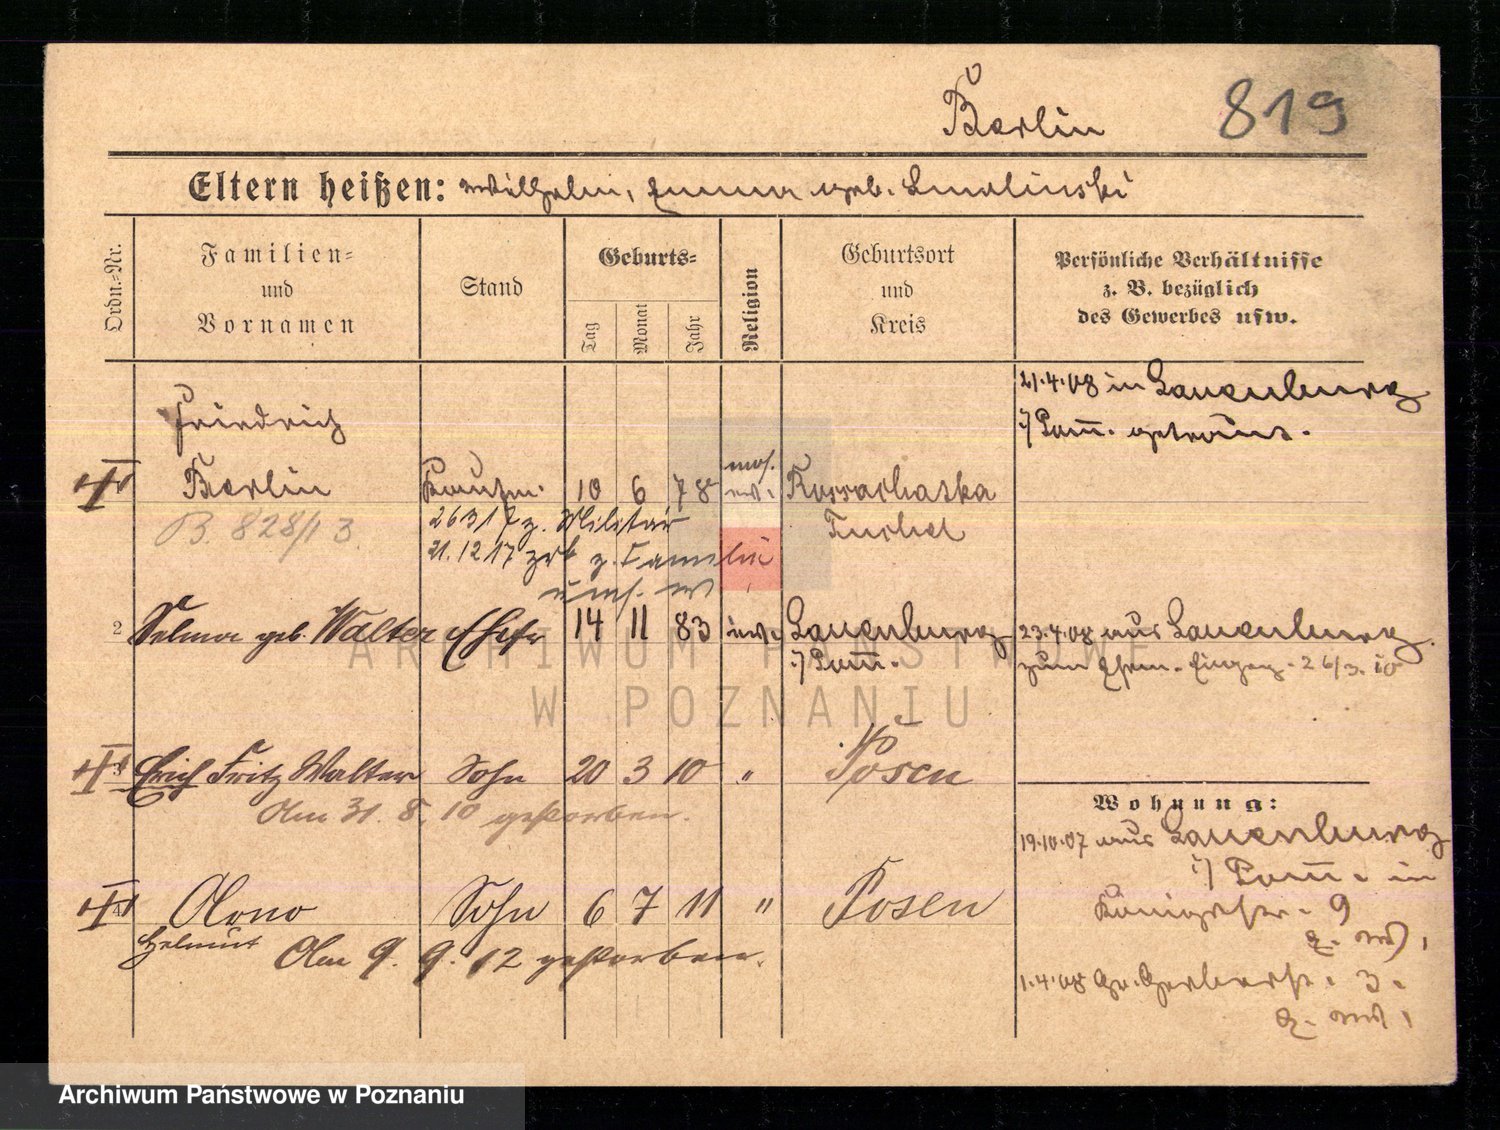 Berlin 819
Eltern heißen: Wilhelm, Emma geb. Smolinski
Ordn.-Nr.
Familien-
und
Vornamen
Stand
Geburts-
Tag
Monat
Jahr
Religion
Geburtsort
und
Kreis
Persönliche Verhältnisse
z. B. bezüglich
des Gewerbes usw.
21.4.08 in Lauenburg
i/ Pom. getraut.
Friedrich
Berlin Kaufm. 10 6 78 Tuchel
B. 828/13
26 3 17 z. Militär
21.12.17 z. Familie
2 Selma geb. Walter Ehefr 14 11 83 ev. Lauenburg
i/ Pom.
23.4.08 aus Lauenburg
zum Ehem. 26/3. 10
3 Erich Fritz Walter Sohn 20 3 10 " Posen
Am 31. 8. 10 gestorben.
4 Arno Sohn 6 7 11 " Posen
Helmut Am 9. 9. 12 gestorben.
Wohnung:
19.10.07 aus Lauenburg
i/ Pom. in
Königstr. 9
1.4.08 Gr. Gerberstr. 3.
ARCHIWUM PAŃSTWOWE
W POZNANIU
Archiwum Państwowe w Poznaniu